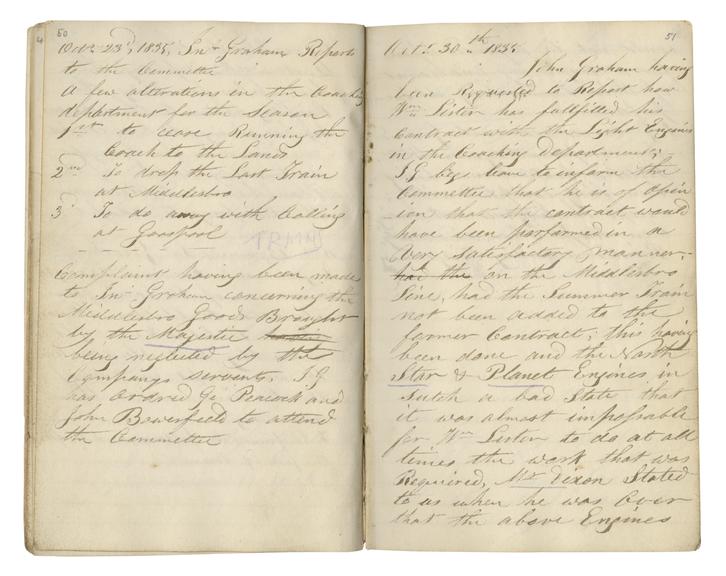 50
Octr. 23d, 1835, Jno. Graham Reports
to the Committe
A few alterations in the Coaching
department for the Season
1st to ceace Running the
Coach to the Lands
2nd To drop the Last Train
at Middlesbro
3d To do away with Calling
at Goospool
Complaint having been made
to Jno. Graham concerning the
Middlesbro Goods Brought
by the Majestic
being neglected by the
Companys servants. J G
has Ordred Ge Peacock and
John Bowerfeets to attend
the Committee
51
Octr. 30th 1835
John Graham having
been Requested to Report how
Wm. Lister has fullfilled his
Contract with the Light Engines
in the Coaching Department;
J G begs leave to inform the
Committee that he is of opin
ion that the contract would
have been performed in a
very satisfactory manner
had the on the Middlesbro
Line, had the Summer Train
not been added to the
former Contract; this having
been done and the North
Star & Planet Engines in
Sutch a bad State that
it was almost impossable
for Wm Lister to do at all
times the work that was
Required, Mr Dixon Stated
to us when he was Over
that the above Engines